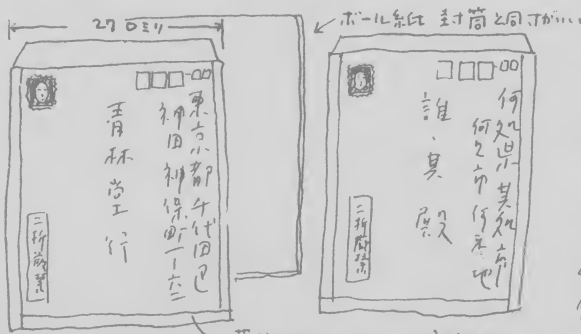 27ロミリ
ボール紙 封筒と同寸がいい
東京都千代田区
神田神保町一ノ
青林堂行
二折厳禁
何処県某処市
何々町何番地
誰某殿
二折厳禁